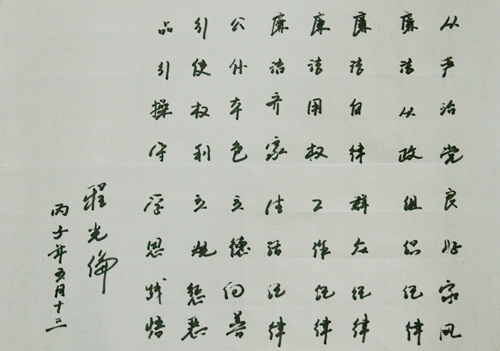 从严治党良好家风
廉洁从政组织纪律
廉洁自律群众纪律
廉洁用权工作纪律
廉洁齐家生活纪律
公仆本色立德向善
行使权利立规惩恶
品行操守学思践悟
程光倫
丙子年五月十二